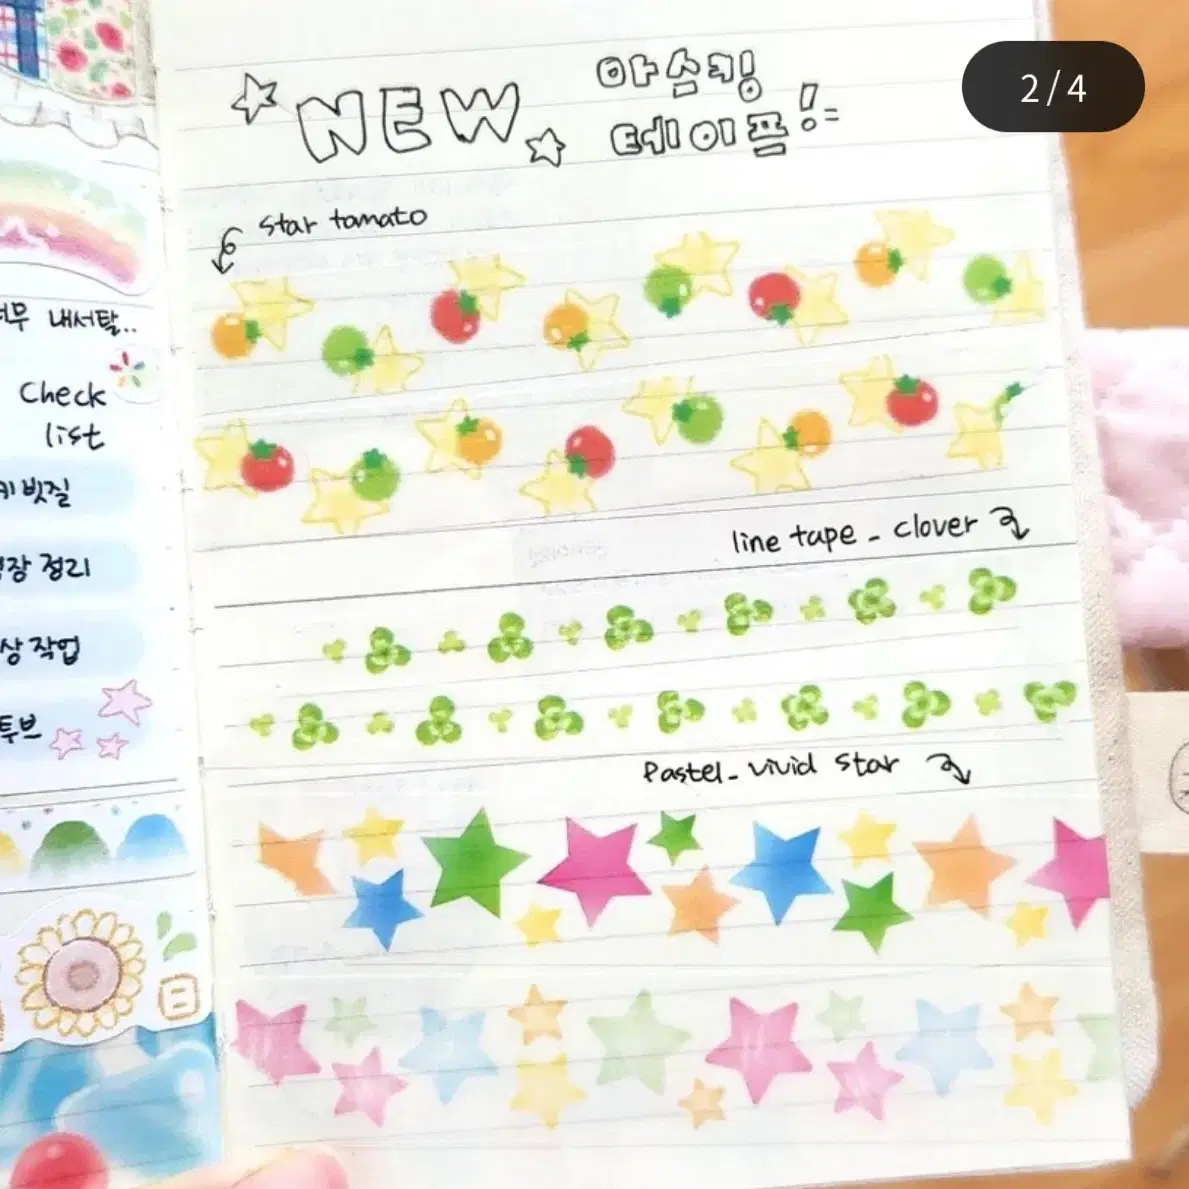 2/4
NEW
마스킹
테이프!
star tomato
line tape - clover
Pastel - vivid star
내서탈..
Check
list
빗질
정리
작업
日